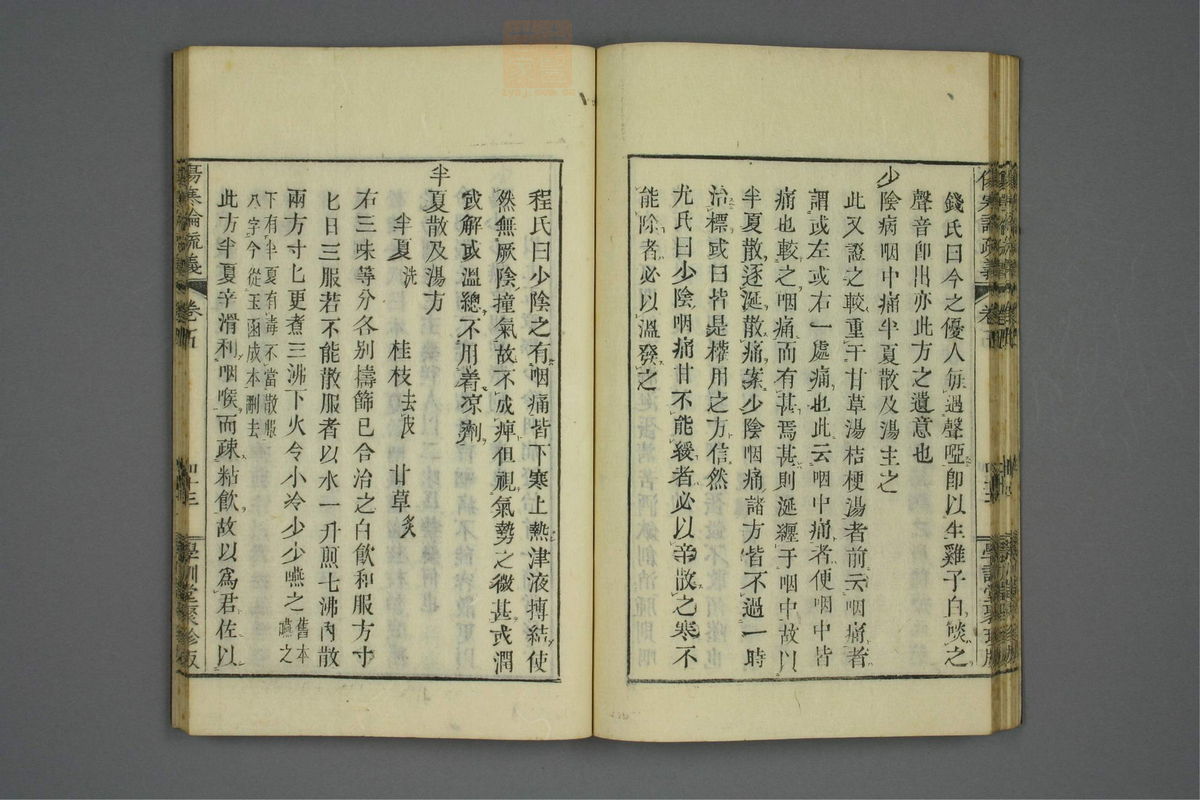 錢氏曰今之優人每遇聲啞卽以生雞子白啖之
聲音卽出亦此方之遺意也
少陰病咽中痛半夏散及湯主之
此又證之較重于甘草湯桔梗湯者前云咽痛者
謂或左或右一處痛也此云咽中痛者便咽中皆
痛也較之咽痛而有甚焉甚則涎纏于咽中故以
半夏散逐涎散痛案少陰咽痛諸方皆不過一時
治標或曰皆是權用之方信然
尤氏曰少陰咽痛甘不能緩者必以辛散之寒不
能除者必以溫發之
程氏曰少陰之有咽痛皆下寒上熱津液搏結使
然無厥陰撞氣故不成痺但視氣勢之微甚或潤
或解或溫總不用着凉劑
半夏散及湯方
半夏洗 桂枝去皮 甘草炙
右三味等分各别擣篩已合治之白飮和服方寸
匕日三服若不能散服者以水一升煎七沸內散
兩方寸匕更煮三沸下火令小冷少少嚥之舊本嚥之
下有半夏有毒不當散服
八字今從玉函成本刪去
此方半夏辛滑利咽喉而疎粘飮故以爲君佐以
傷寒論疏義 卷五 學訓堂聚珍版